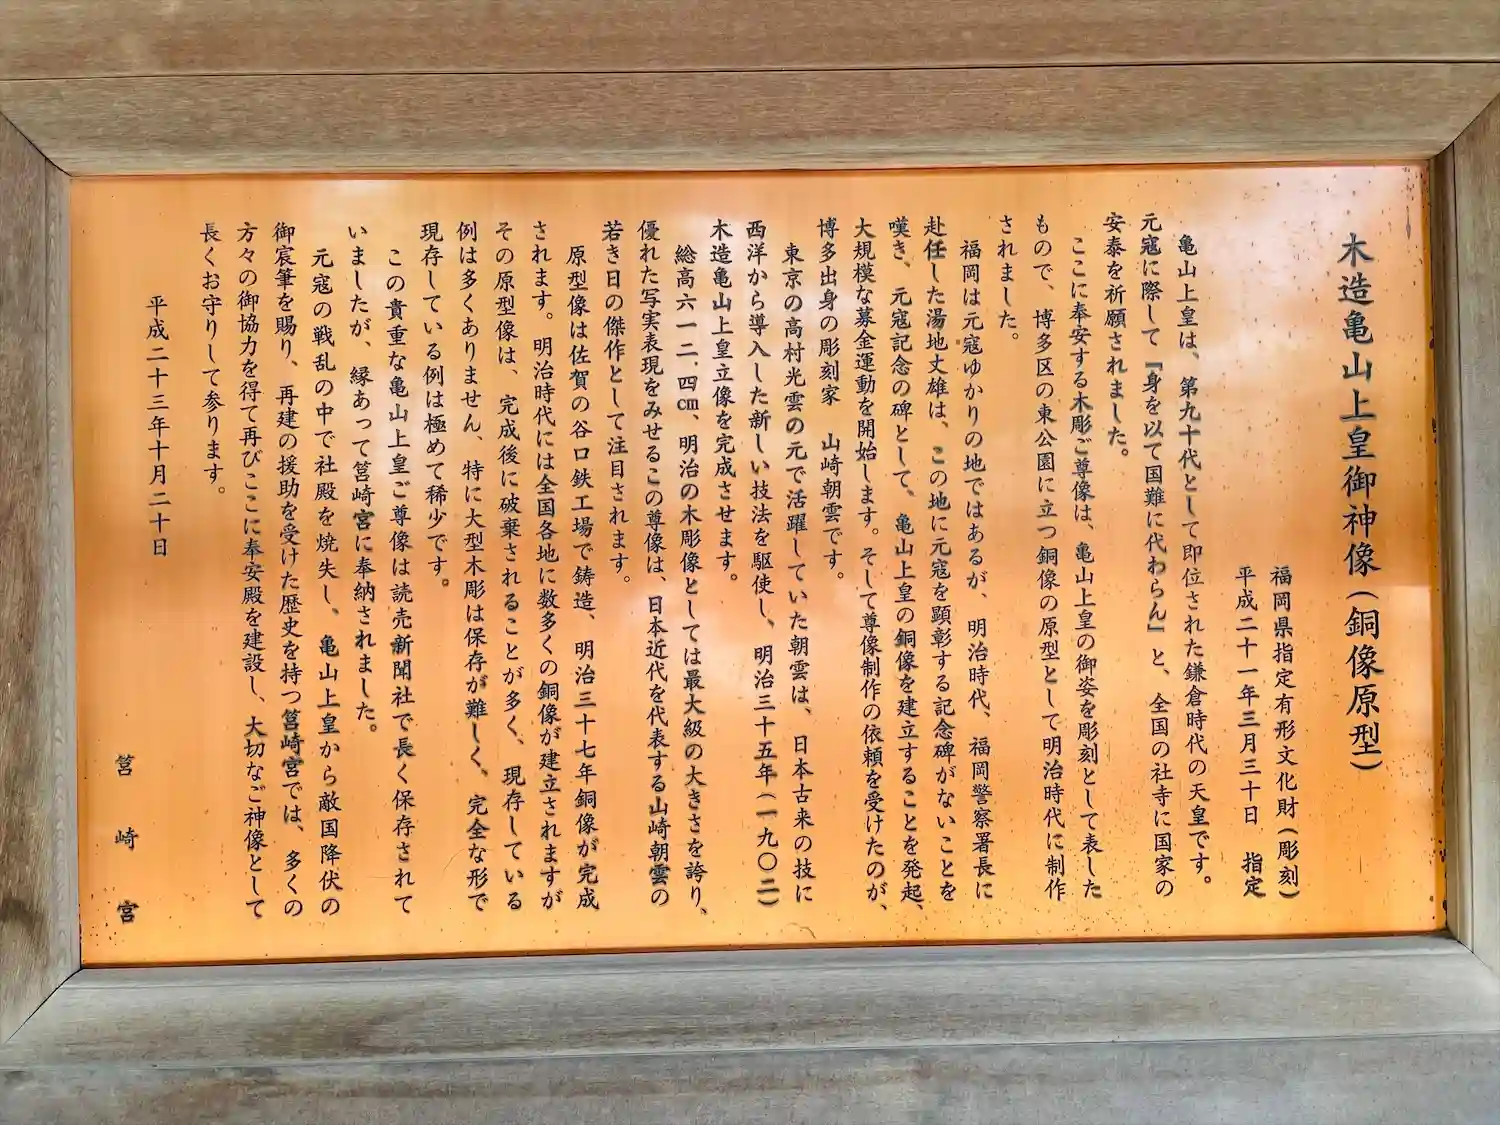 木造亀山上皇御神像(銅像原型)
福岡県指定有形文化財(彫刻)
平成二十一年三月三十日 指定
亀山上皇は、第九十代として即位された鎌倉時代の天皇です。
元寇に際して『身を以て国難に代わらん』と、全国の社寺に国家の
安泰を祈願されました。
ここに奉安する木彫ご尊像は、亀山上皇の御姿を彫刻として表した
もので、博多区の東公園に立つ銅像の原型として明治時代に制作
されました。
福岡は元寇ゆかりの地ではあるが、明治時代、福岡警察署長に
赴任した湯地丈雄は、この地に元寇を顕彰する記念碑がないことを
嘆き、元寇記念の碑として、亀山上皇の銅像を建立することを発起、
大規模な募金運動を開始します。そして尊像制作の依頼を受けたのが、
博多出身の彫刻家 山崎朝雲です。
東京の高村光雲の元で活躍していた朝雲は、日本古来の技に
西洋から導入した新しい技法を駆使し、明治三十五年(一九〇二)
木造亀山上皇立像を完成させます。
総高六一二、四㎝、明治の木彫像としては最大級の大きさを誇り、
優れた写実表現をみせるこの尊像は、日本近代を代表する山崎朝雲の
若き日の傑作として注目されます。
原型像は佐賀の谷口鉄工場で鋳造、明治三十七年銅像が完成
されます。明治時代には全国各地に数多くの銅像が建立されますが
その原型像は、完成後に破棄されることが多く、現存している
例は多くありません、特に大型木彫は保存が難しく、完全な形で
現存している例は極めて稀少です。
この貴重な亀山上皇ご尊像は読売新聞社で長く保存されて
いましたが、縁あって筥崎宮に奉納されました。
元寇の戦乱の中で社殿を焼失し、亀山上皇から敵国降伏の
御宸筆を賜り、再建の援助を受けた歴史を持つ筥崎宮では、多くの
方々の御協力を得て再びここに奉安殿を建設し、大切なご神像として
長くお守りして参ります。
平成二十三年十月二十日
筥崎宮